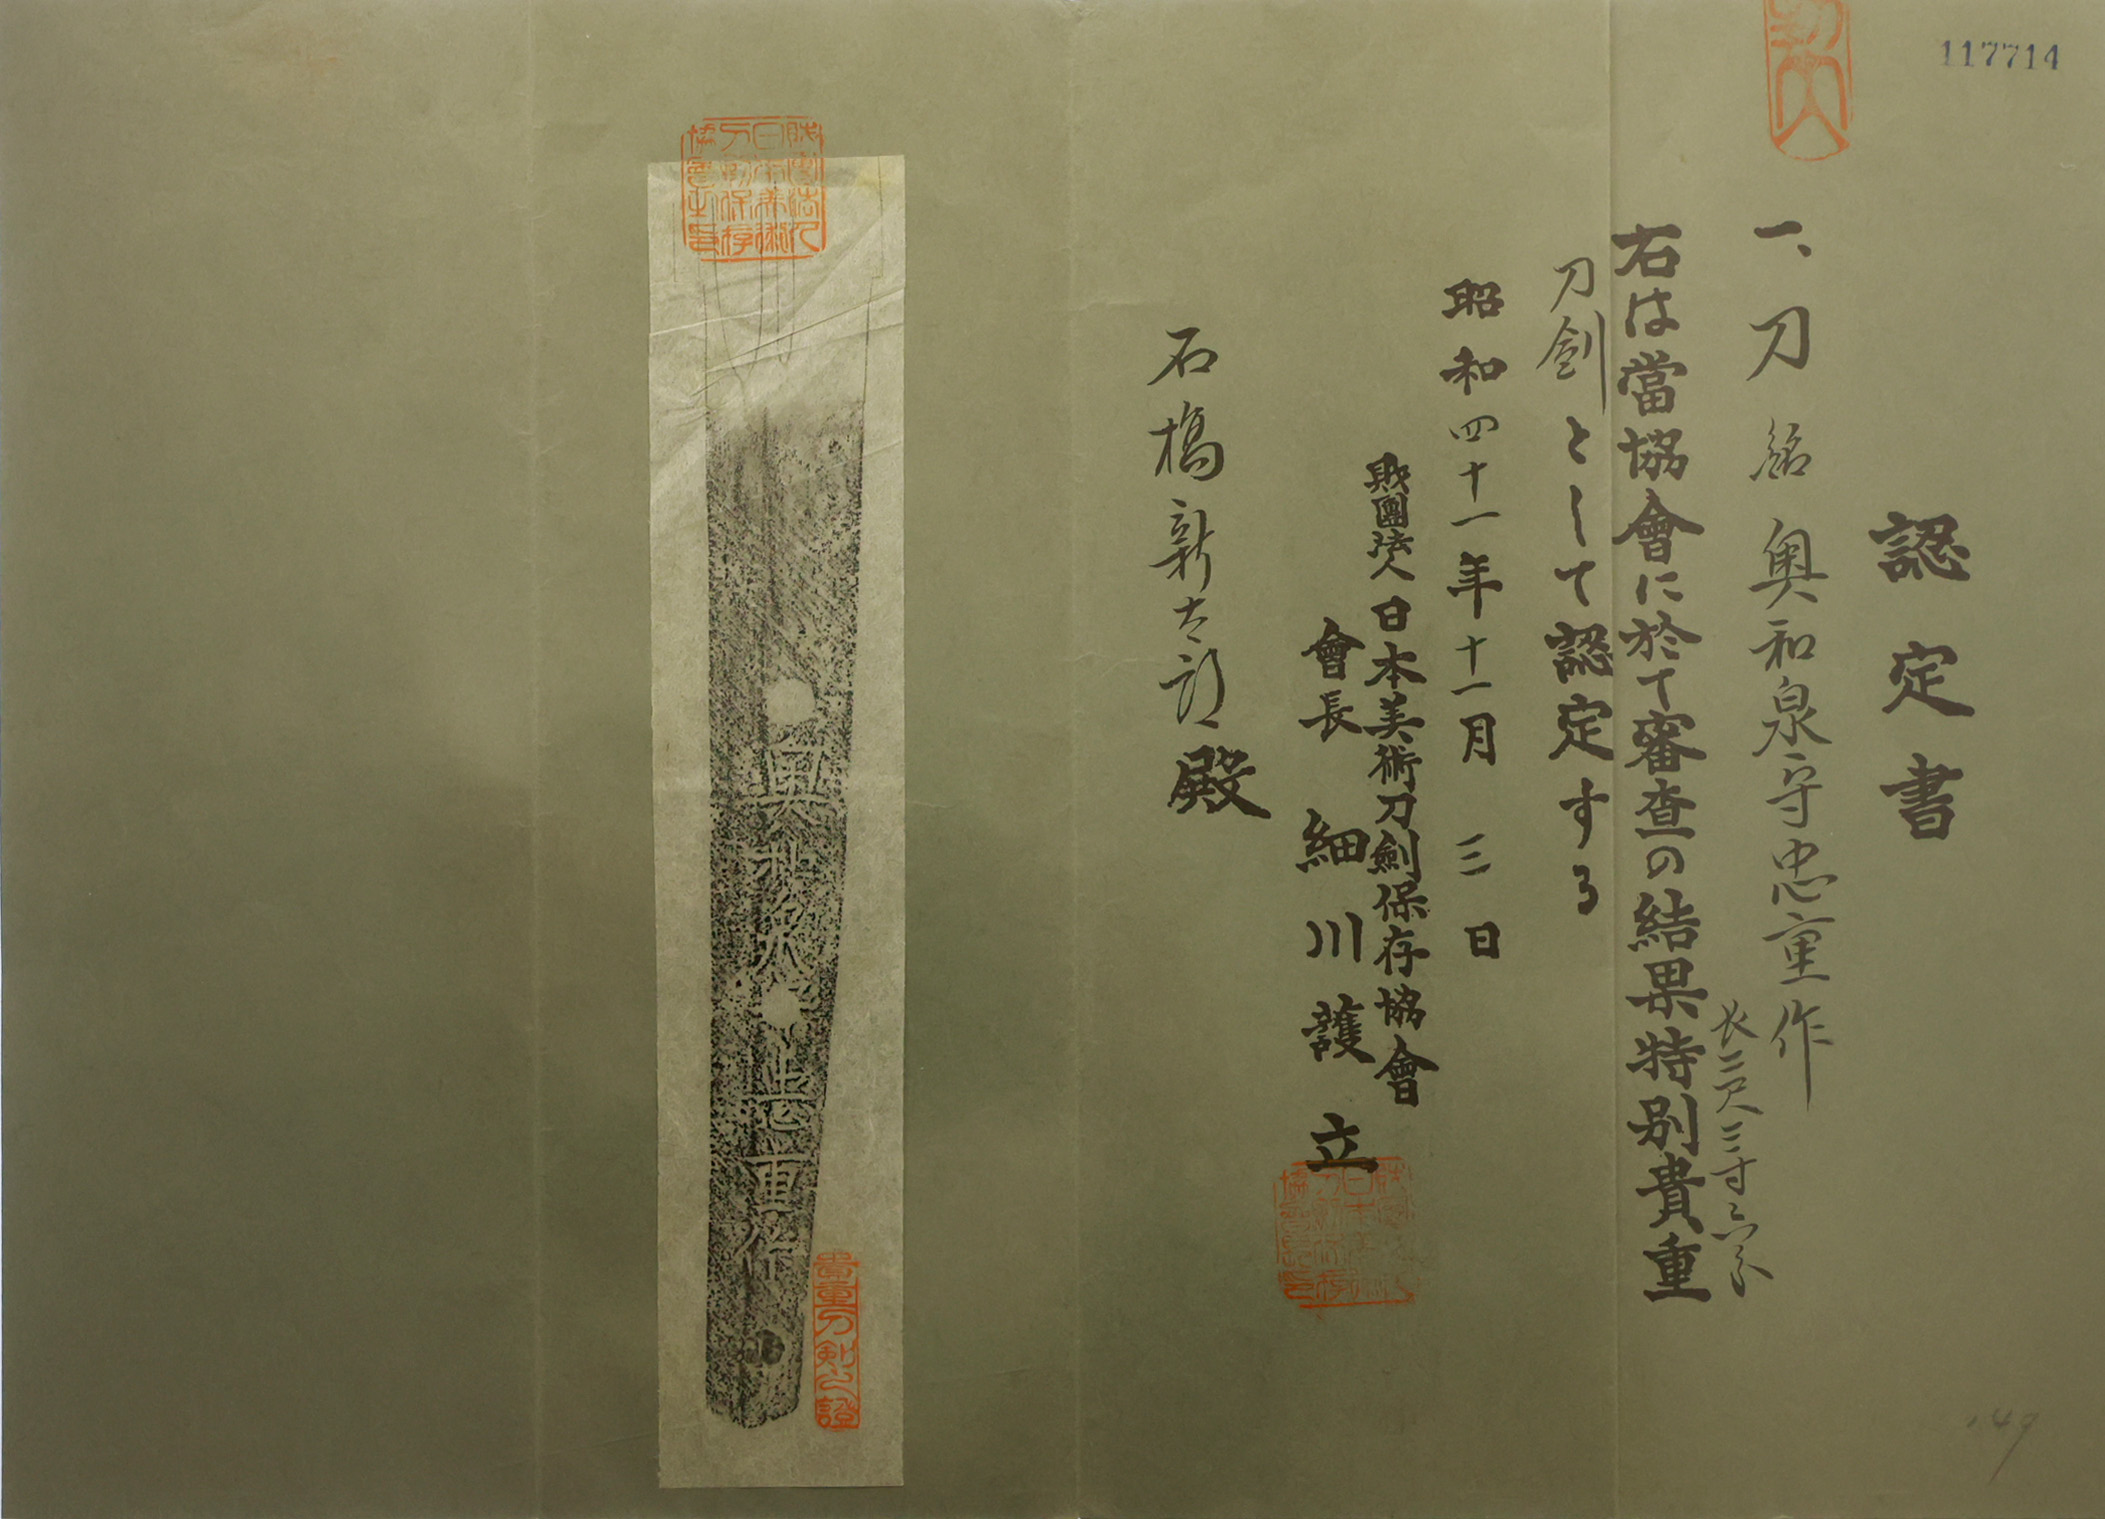 117714
認定書
一、刀 銘 奥和泉守忠重作
長二尺三寸六分
右は當協會に於て審査の結果特別貴重
刀剣として認定する
昭和四十一年十一月三日
財團法人日本美術刀劍保存協會
會長 細川護立
石橋新太郎殿
奥和泉守忠重作
貴重刀剣之證
149